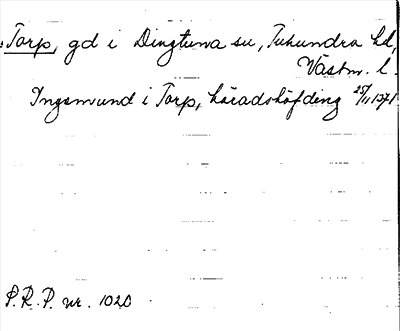 Torp, gd i Dingtuna sn, Tuhundra hd,
Västm. l.
Ingemund i Torp, häradshöfding 25/11 1371
P.R.P. nr. 1020